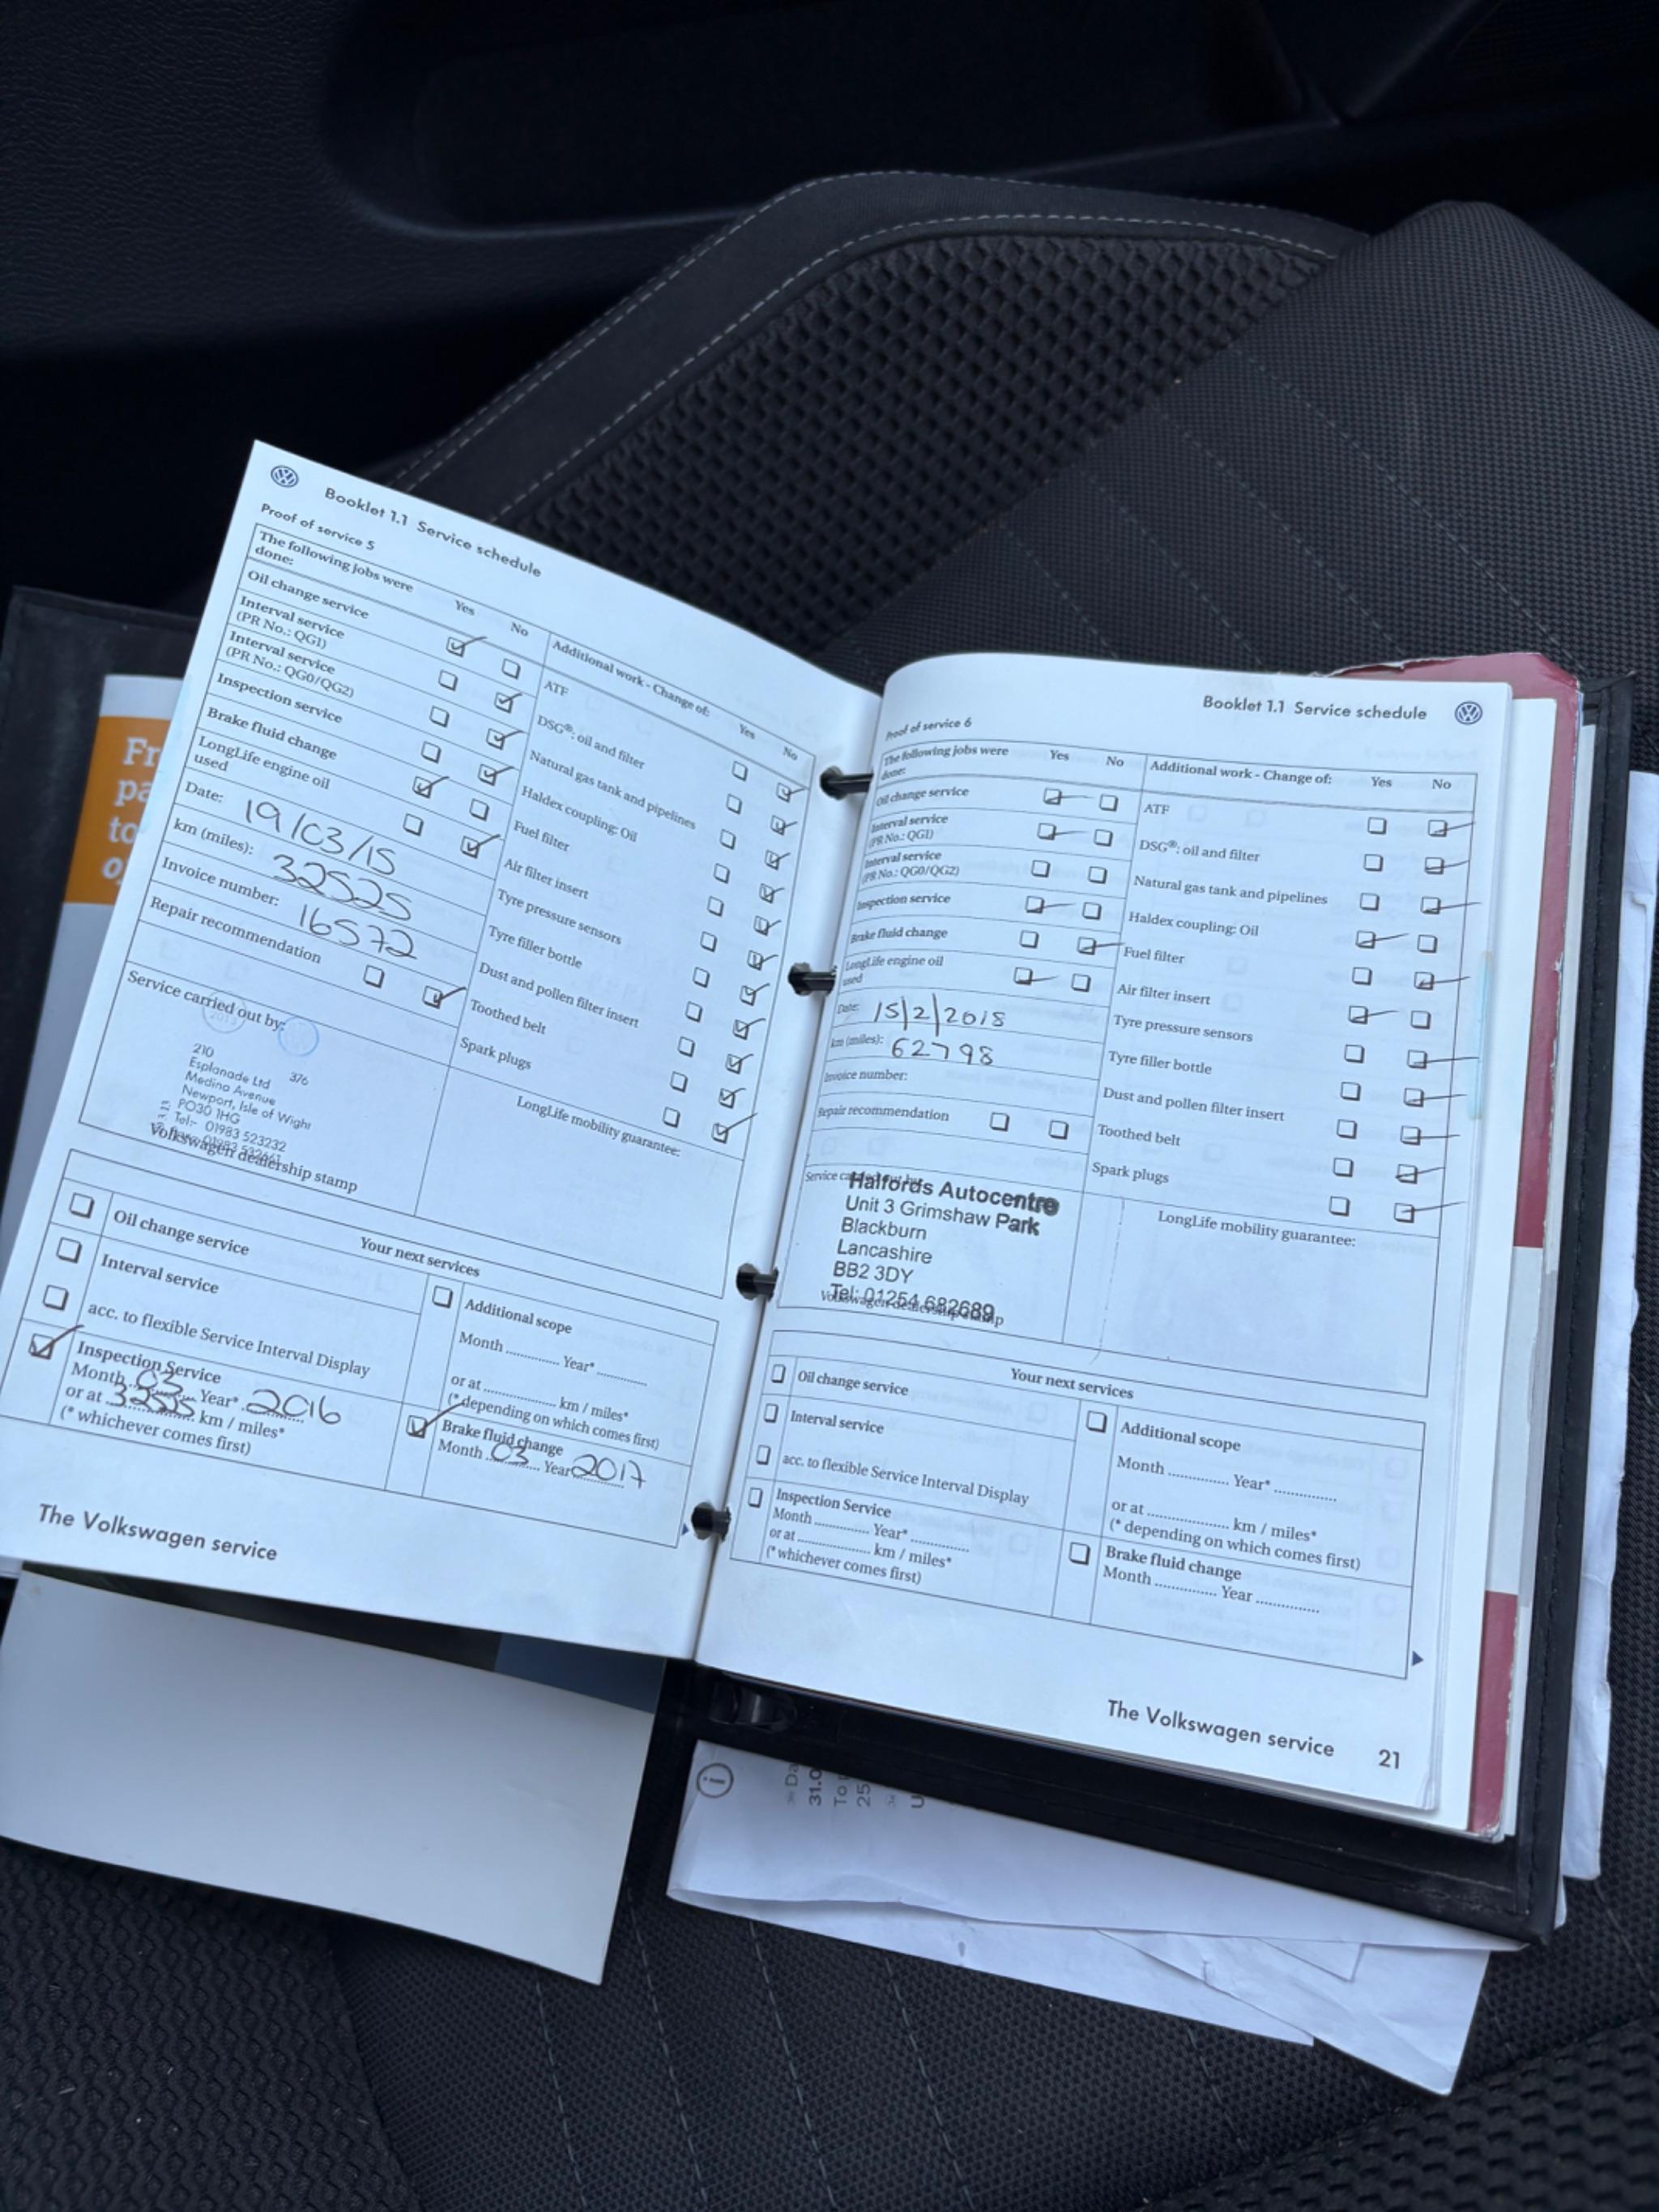 Booklet 1.1 Service schedule
Proof of service 5
The following jobs were done:
Yes
No
Additional work - Change of:
Yes
No
Oil change service
Interval service
(PR No.: QG1)
Interval service
(PR No.: QG0/QG2)
Inspection service
Brake fluid change
LongLife engine oil
used
Date: 19/03/15
km (miles): 32525
Invoice number: 16572
Repair recommendation
ATF
DSG®: oil and filter
Natural gas tank and pipelines
Haldex coupling: Oil
Fuel filter
Air filter insert
Tyre pressure sensors
Tyre filler bottle
Dust and pollen filter insert
Toothed belt
Spark plugs
Service carried out by:
210
376
Esplanade Ltd
Medina Avenue
Newport, Isle of Wight
PO30 1HG
Tel:- 01983 523232
Volkswagen dealership stamp
LongLife mobility guarantee:
Your next services
Oil change service
Interval service
acc. to flexible Service Interval Display
Inspection Service
Month 03 Year* 2016
or at km / miles*
(* whichever comes first)
Additional scope
Month ............ Year* ............
or at ................. km / miles*
(* depending on which comes first)
Brake fluid change
Month 03 Year 2017
The Volkswagen service
Booklet 1.1 Service schedule
Proof of service 6
The following jobs were
done:
Yes
No
Additional work - Change of:
Yes
No
Oil change service
Interval service
(PR No.: QG1)
Interval service
(PR No.: QG0/QG2)
Inspection service
Brake fluid change
LongLife engine oil
used
Date: 15/2/2018
km (miles): 62798
Invoice number:
Repair recommendation
ATF
DSG®: oil and filter
Natural gas tank and pipelines
Haldex coupling: Oil
Fuel filter
Air filter insert
Tyre pressure sensors
Tyre filler bottle
Dust and pollen filter insert
Toothed belt
Spark plugs
Halfords Autocentre
Unit 3 Grimshaw Park
Blackburn
Lancashire
BB2 3DY
Tel: 01254 682689
Volkswagen dealership stamp
LongLife mobility guarantee:
Your next services
Oil change service
Interval service
acc. to flexible Service Interval Display
Inspection Service
Month ............ Year* ............
or at ................ km / miles*
(* whichever comes first)
Additional scope
Month ............ Year* ............
or at ................ km / miles*
(* depending on which comes first)
Brake fluid change
Month ............ Year ............
The Volkswagen service
21